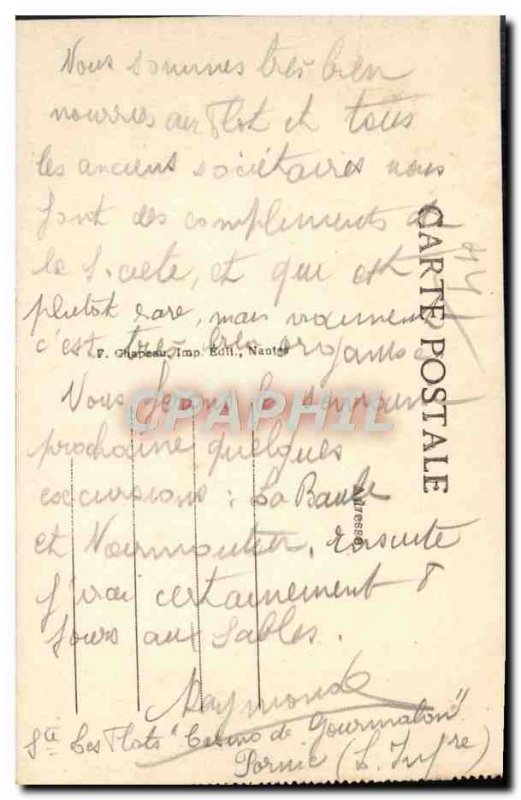 Nous sommes très bien
nourries au Flot et tous
les anciens sociétaires nous
font des compliments de
la Société, et qui est
plutot rare, mais vraiment
c'est très très organisé
F. Chapeau, Imp. Édit., Nantes
Nous ferons la semaine
prochaine quelques
excursions : La Baule
et Noirmoutier, ensuite
j'irai certainement 8
jours aux Sables.
Raymonde
Sté Les Flots "Casino de Gourmalon"
Pornic (L. Infre)
CARTE POSTALE
Adresse
CPAPHIL